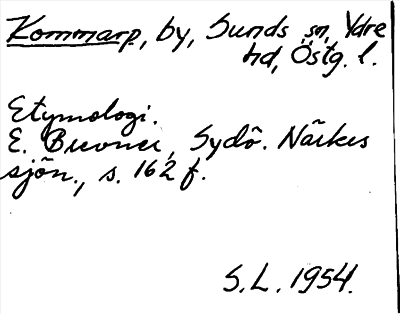 Kommarp, by, Sunds sn, Ydre
hd, Östg. l.
Etymologi.
E. Brevner, Sydö. Närkes
sjön., s. 162 f.
S.L. 1954.